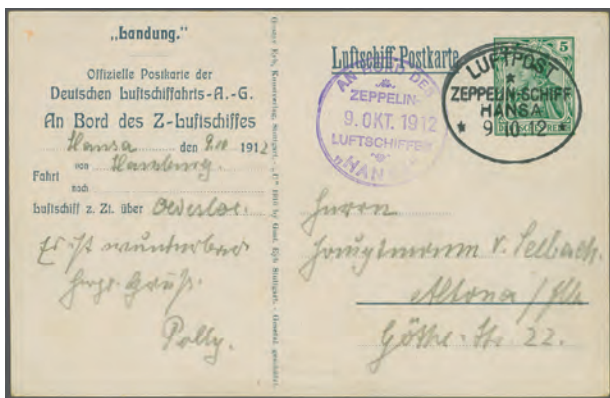 „Landung.“
Offizielle Postkarte der
Deutschen Luftschiffahrts-A.-G.
An Bord des Z-Luftschiffes
Hansa den 9.10 1912
von Hamburg.
Fahrt
nach
Luftschiff z. Zt. über Oldesloe.
Es ist wunderbar
Herzl. Gruß.
Polly.
Luftschiff-Postkarte
AN BORD DES
ZEPPELIN-
9. OKT. 1912
LUFTSCHIFFES
„HANSA“
5
LUFTPOST
ZEPPELIN-SCHIFF
HANSA
* 9.10.12 *
Herrn
Hauptmann v. Selbach.
Altona /
Göthe-Str. 22.